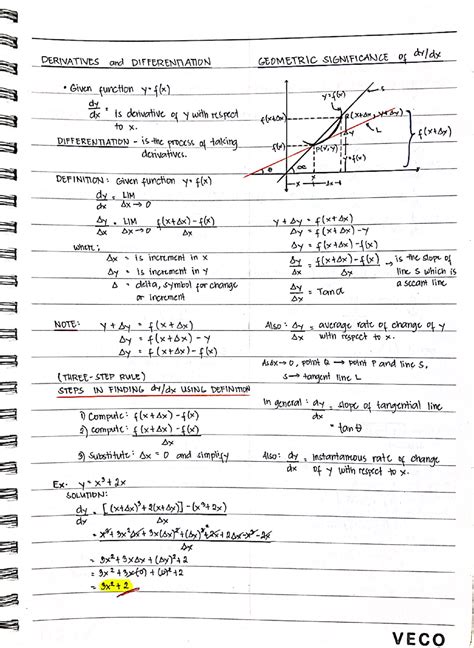 DERIVATIVES and DIFFERENTIATION
• Given function y = f(x)
dy/dx = Is derivative of y with respect
to x.
DIFFERENTIATION - is the process of taking
derivatives.
DEFINITION: Given function y = f(x)
dy/dx = LIM Δx → 0
Δy/Δx = LIM Δx → 0 f(x+Δx) - f(x) / Δx
where;
Δx = Is increment in x
Δy = Is increment in y
Δ = delta, symbol for change
or increment
NOTE: y + Δy = f(x + Δx)
Δy = f(x+Δx) - y
Δy = f(x+Δx) - f(x)
(THREE-STEP RULE)
STEPS IN FINDING dy/dx USING DEFINITION
1) Compute: f(x+Δx) - f(x)
2) compute: f(x+Δx) - f(x) / Δx
3) Substitute: Δx = 0 and simplify
Ex. y = x³ + 2x
SOLUTION:
dy/dx = [(x+Δx)³ + 2(x+Δx)] - (x³ + 2x) / Δx
= x³ + 3x²Δx + 3x(Δx)² + (Δx)³ + 2x + 2Δx - x³ - 2x / Δx
= 3x² + 3xΔx + (Δx)² + 2
= 3x² + 3x(0) + (0)² + 2
= 3x² + 2
GEOMETRIC SIGNIFICANCE of dy/dx
y = f(x)
S
f(x+Δx)
Q(x+Δx, y+Δy)
L
Δy
f(x+Δx)
f(x)
P(x,y)
y = f(x)
θ
α
x
x
Δx
y + Δy = f(x+Δx)
Δy = f(x+Δx) - y
Δy = f(x+Δx) - f(x)
Δy/Δx = f(x+Δx) - f(x) / Δx → is the slope of
line S which is
a secant line
Δy/Δx = Tan α
Also: Δy/Δx = average rate of change of y
with respect to x.
As Δx → 0, point Q → point P and line S,
S → tangent line L
In general: dy/dx = slope of tangential line
= tan θ
Also: dy/dx = instantaneous rate of change
of y with respect to x.
VECO